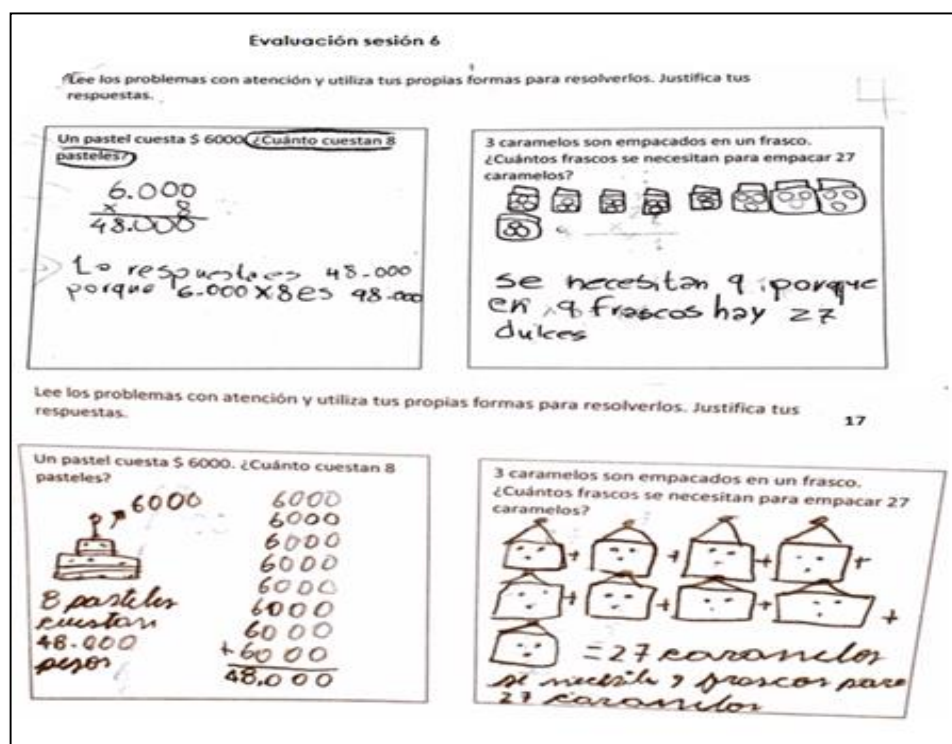 Evaluación sesión 6
Lee los problemas con atención y utiliza tus propias formas para resolverlos. Justifica tus
respuestas.
Un pastel cuesta $ 6000 ¿Cuánto cuestan 8
pasteles?
6.000
x 8
48.000
La respuesta es 48.000
porque 6.000 X 8 es 48.000
3 caramelos son empacados en un frasco.
¿Cuántos frascos se necesitan para empacar 27
caramelos?
se necesitan 9 porque
en 9 frascos hay 27
dulces
Lee los problemas con atención y utiliza tus propias formas para resolverlos. Justifica tus
respuestas.
17
Un pastel cuesta $ 6000. ¿Cuánto cuestan 8
pasteles?
6000
8 pasteles
cuestan
48.000
pesos
6000
6000
6000
6000
6000
6000
6000
+ 6000
48.000
3 caramelos son empacados en un frasco.
¿Cuántos frascos se necesitan para empacar 27
caramelos?
+ + + +
+ + + +
= 27 caramelos
se necesita 9 frascos para
27 caramelos